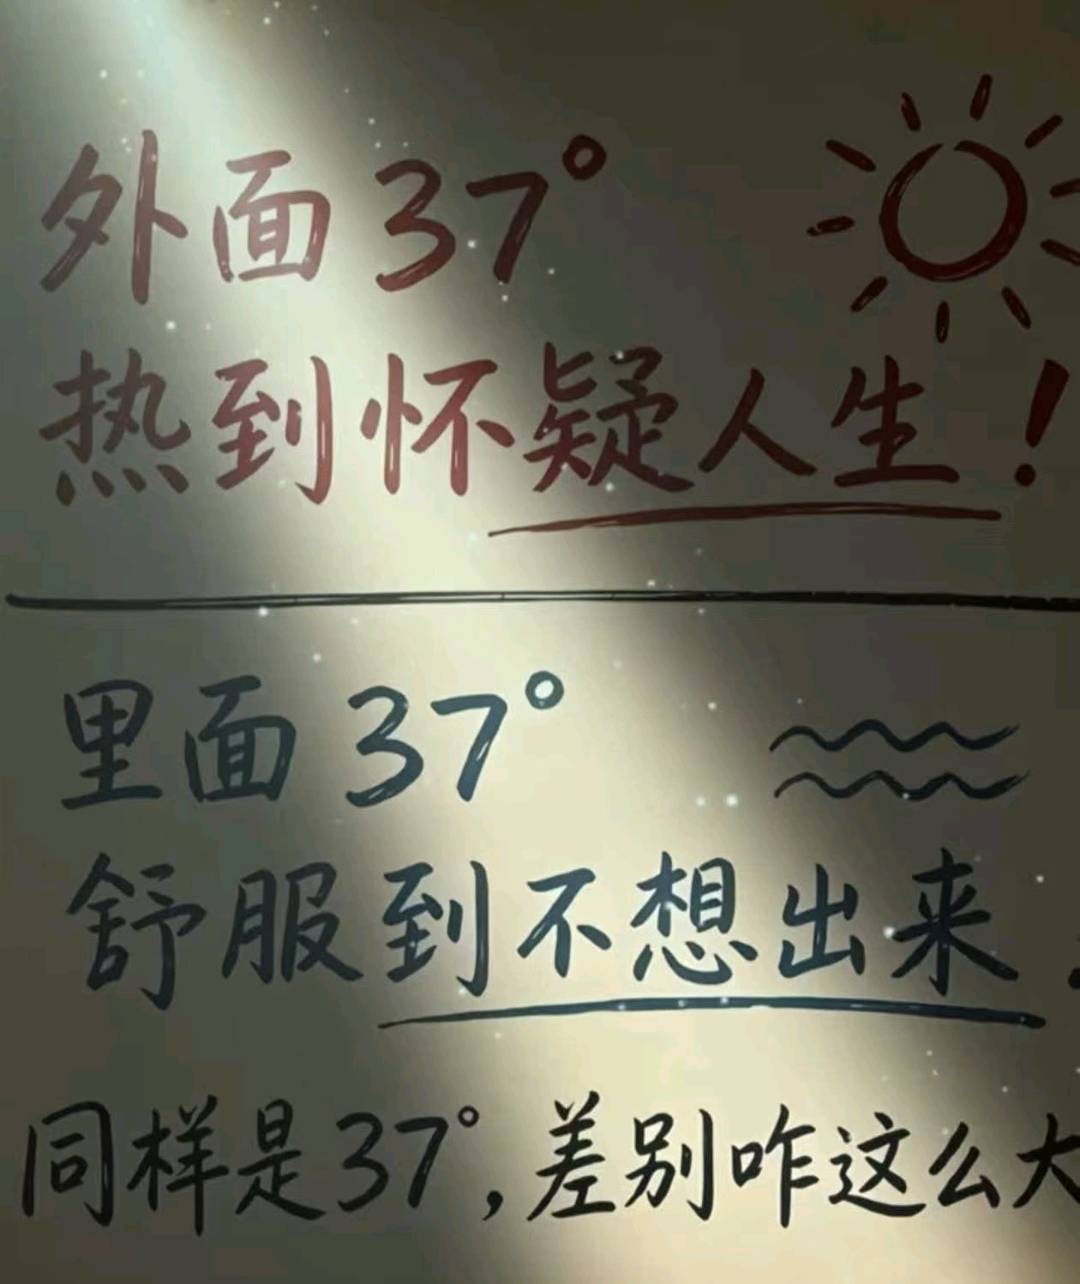 外面37°
热到怀疑人生！
里面37°
舒服到不想出来
同样是37°，差别咋这么大